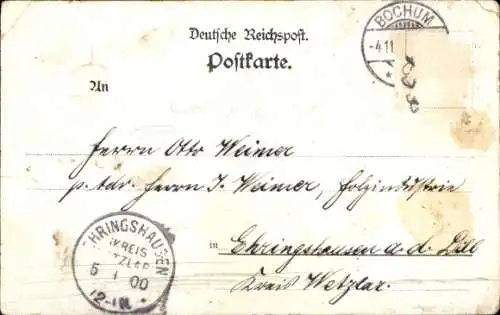 Deutsche Reichspost.
Postkarte.
BOCHUM
4.11
An
Herrn Otto Weimer
p. Adr. Herrn J. Weimer, Holzindustrie
in Ehringshausen a. d. Dill
Kreis Wetzlar.
EHRINGSHAUSEN
KREIS
WETZLAR
5 00
12-1N.